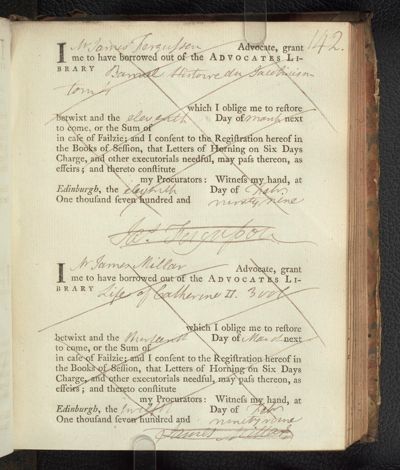 142.
I Mr James Fergusson Advocate, grant
me to have borrowed out of the ADVOCATES LI-
BRARY Barruel Histoire du Jacobinism
tom 1
which I oblige me to reſtore
betwixt and the eleventh Day of next
to come, or the Sum of
in caſe of Failzie; and I conſent to the Regiſtration hereof in
the Books of Seſſion, that Letters of Horning on Six Days
Charge, and other executorials needful, may paſs thereon, as
effeirs; and thereto conſtitute
my Procurators: Witneſs my hand, at
Edinburgh, the eleventh Day of Feb.
One thouſand ſeven hundred and ninety nine
Jas Ferguſson
I Mr James Millar Advocate, grant
me to have borrowed out of the ADVOCATES LI-
BRARY Life of Catherine II. 3 vol.
which I oblige me to reſtore
betwixt and the Day of March next
to come, or the Sum of
in caſe of Failzie; and I conſent to the Regiſtration hereof in
the Books of Seſſion, that Letters of Horning on Six Days
Charge, and other executorials needful, may paſs thereon, as
effeirs; and thereto conſtitute
my Procurators: Witneſs my hand, at
Edinburgh, the twelfth Day of Feb.
One thouſand ſeven hundred and ninety nine
James Millar